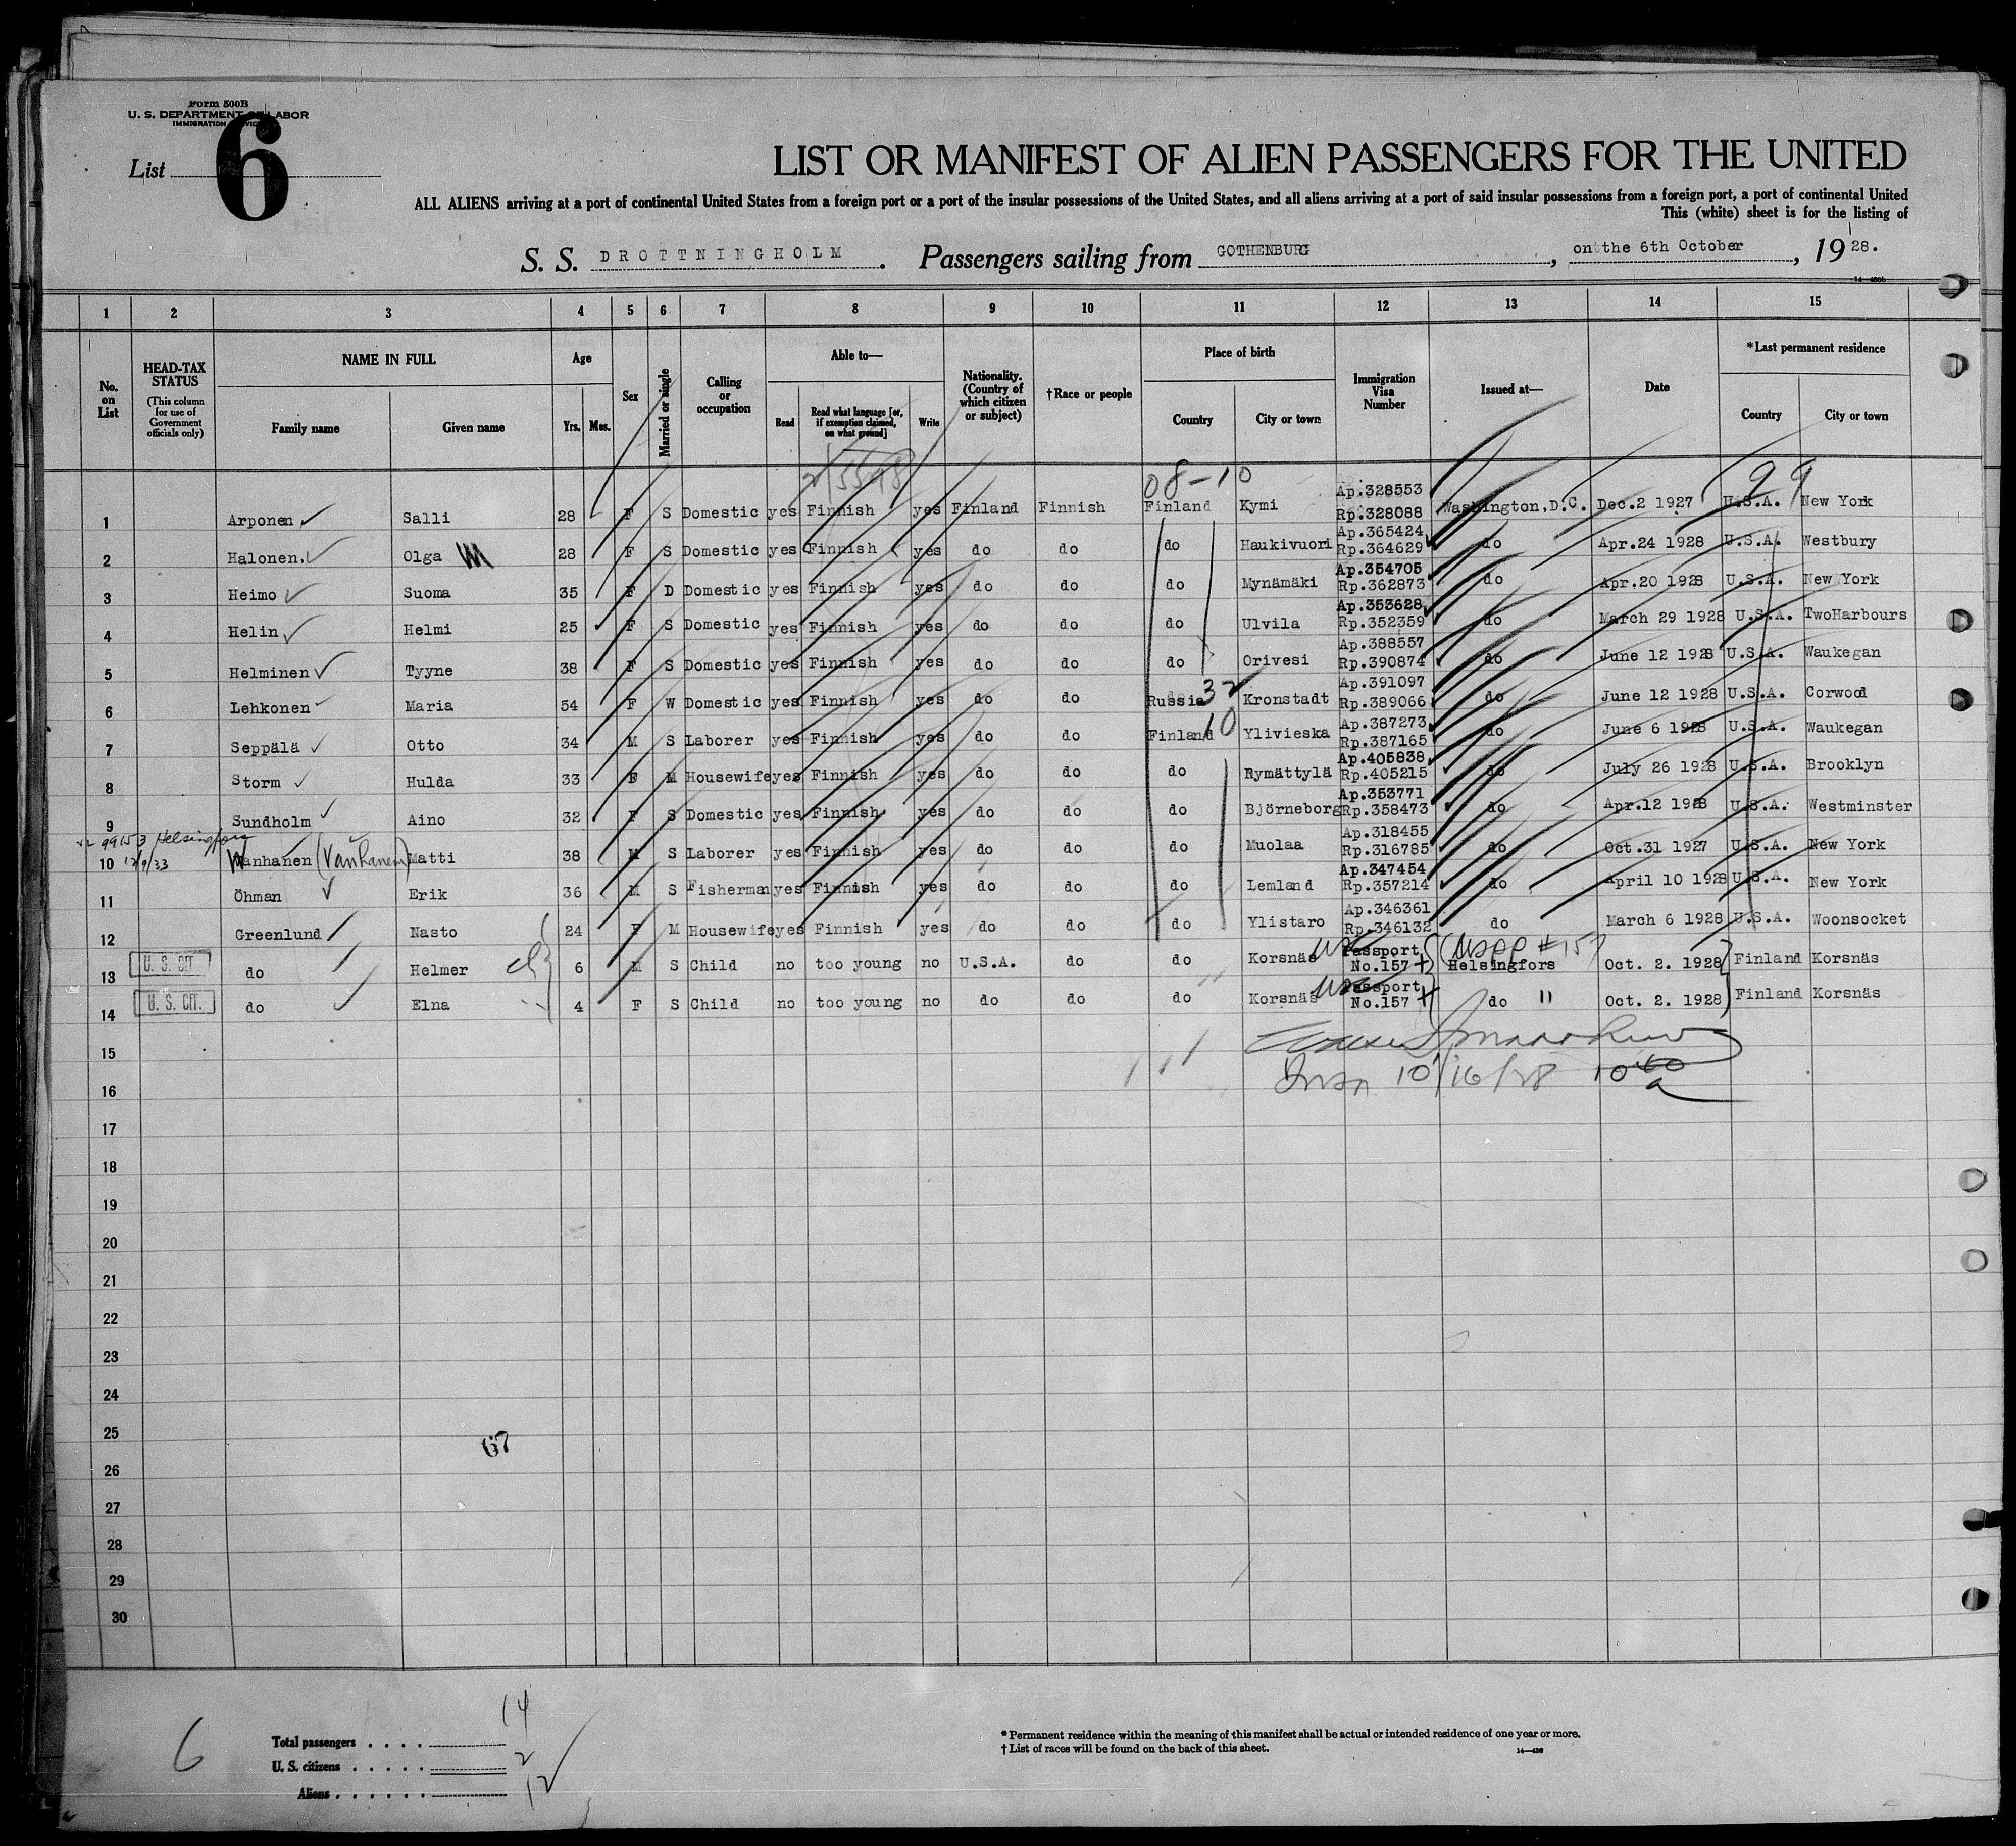 Form 500B
U. S. DEPARTMENT OF LABOR
IMMIGRATION SERVICE
List 6
LIST OR MANIFEST OF ALIEN PASSENGERS FOR THE UNITED
ALL ALIENS arriving at a port of continental United States from a foreign port or a port of the insular possessions of the United States, and all aliens arriving at a port of said insular possessions from a foreign port, a port of continental United
This (white) sheet is for the listing of
S. S. DROTTNINGHOLM. Passengers sailing from GOTHENBURG, on the 6th October, 1928.
1 2 3 4 5 6 7 8 9 10 11 12 13 14 15
No. on List
HEAD-TAX STATUS (This column for use of Government officials only)
NAME IN FULL Family name Given name
Age Yrs. Mos.
Sex
Married or single
Calling or occupation
Able to— Read Read what language [or, if exemption claimed, on what ground] Write
Nationality. (Country of which citizen or subject)
†Race or people
Place of birth Country City or town
Immigration Visa Number
Issued at—
Date
*Last permanent residence Country City or town
08-10 99
1 Arponen Salli 28 F S Domestic yes Finnish yes Finland Finnish Finland Kymi Ap.328553 Rp.328088 Washington.D.C. Dec.2 1927 U.S.A. New York
2 Halonen. Olga M 28 F S Domestic yes Finnish yes do do do Haukivuori Ap.365424 Rp.364629 do Apr.24 1928 U.S.A. Westbury
3 Heimo Suoma 35 F D Domestic yes Finnish yes do do do Mynämäki Ap.354705 Rp.362873 do Apr.20 1928 U.S.A. New York
4 Helin Helmi 25 F S Domestic yes Finnish yes do do do Ulvila Ap.353628 Rp.352359 do March 29 1928 U.S.A. TwoHarbours
5 Helminen Tyyne 38 F S Domestic yes Finnish yes do do do Orivesi Ap.388557 Rp.390874 do June 12 1928 U.S.A. Waukegan
6 Lehkonen Maria 54 F W Domestic yes Finnish yes do do Russia 32 Kronstadt Ap.391097 Rp.389066 do June 12 1928 U.S.A. Corwood
7 Seppälä Otto 34 M S Laborer yes Finnish yes do do Finland 10 Ylivieska Ap.387273 Rp.387165 do June 6 1928 U.S.A. Waukegan
8 Storm Hulda 33 F M Housewife yes Finnish yes do do do Rymättylä Ap.405838 Rp.405215 do July 26 1928 U.S.A. Brooklyn
9 Sundholm Aino 32 F S Domestic yes Finnish yes do do do Björneborg Ap.353771 Rp.358473 do Apr.12 1928 U.S.A. Westminster
Helsingfors
10 12/9/33 Wanhanen (Vanhanen) Matti 38 M S Laborer yes Finnish yes do do do Muolaa Ap.318455 Rp.316785 do Oct.31 1927 U.S.A. New York
11 Öhman Erik 36 M S Fisherman yes Finnish yes do do do Lemland Ap.347454 Rp.357214 do April 10 1928 U.S.A. New York
12 Greenlund Nasto 24 F M Housewife yes Finnish yes do do do Ylistaro Ap.346361 Rp.346132 do March 6 1928 U.S.A. Woonsocket
13 U. S. CIT. do Helmer 6 M S Child no too young no U.S.A. do do Korsnäs Passport No.157 Helsingfors Oct. 2. 1928 Finland Korsnäs
14 U. S. CIT. do Elna 4 F S Child no too young no do do do Korsnäs Passport No.157 do " Oct. 2. 1928 Finland Korsnäs
15
16 10/16/28 10 40 a
17
18
19
20
21
22
23
24
25
67
26
27
28
29
30
6
Total passengers 14
U. S. citizens 2
Aliens 12
* Permanent residence within the meaning of this manifest shall be actual or intended residence of one year or more.
† List of races will be found on the back of this sheet.